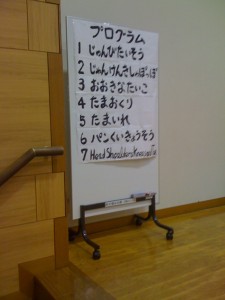 プログラム
1 じゅんびたいそう
2 じゃんけんきしゃぽっぽ
3 おおきなたいこ
4 たまおくり
5 たまいれ
6 パンくいきょうそう
7 Head Shoulders Knees and Toe